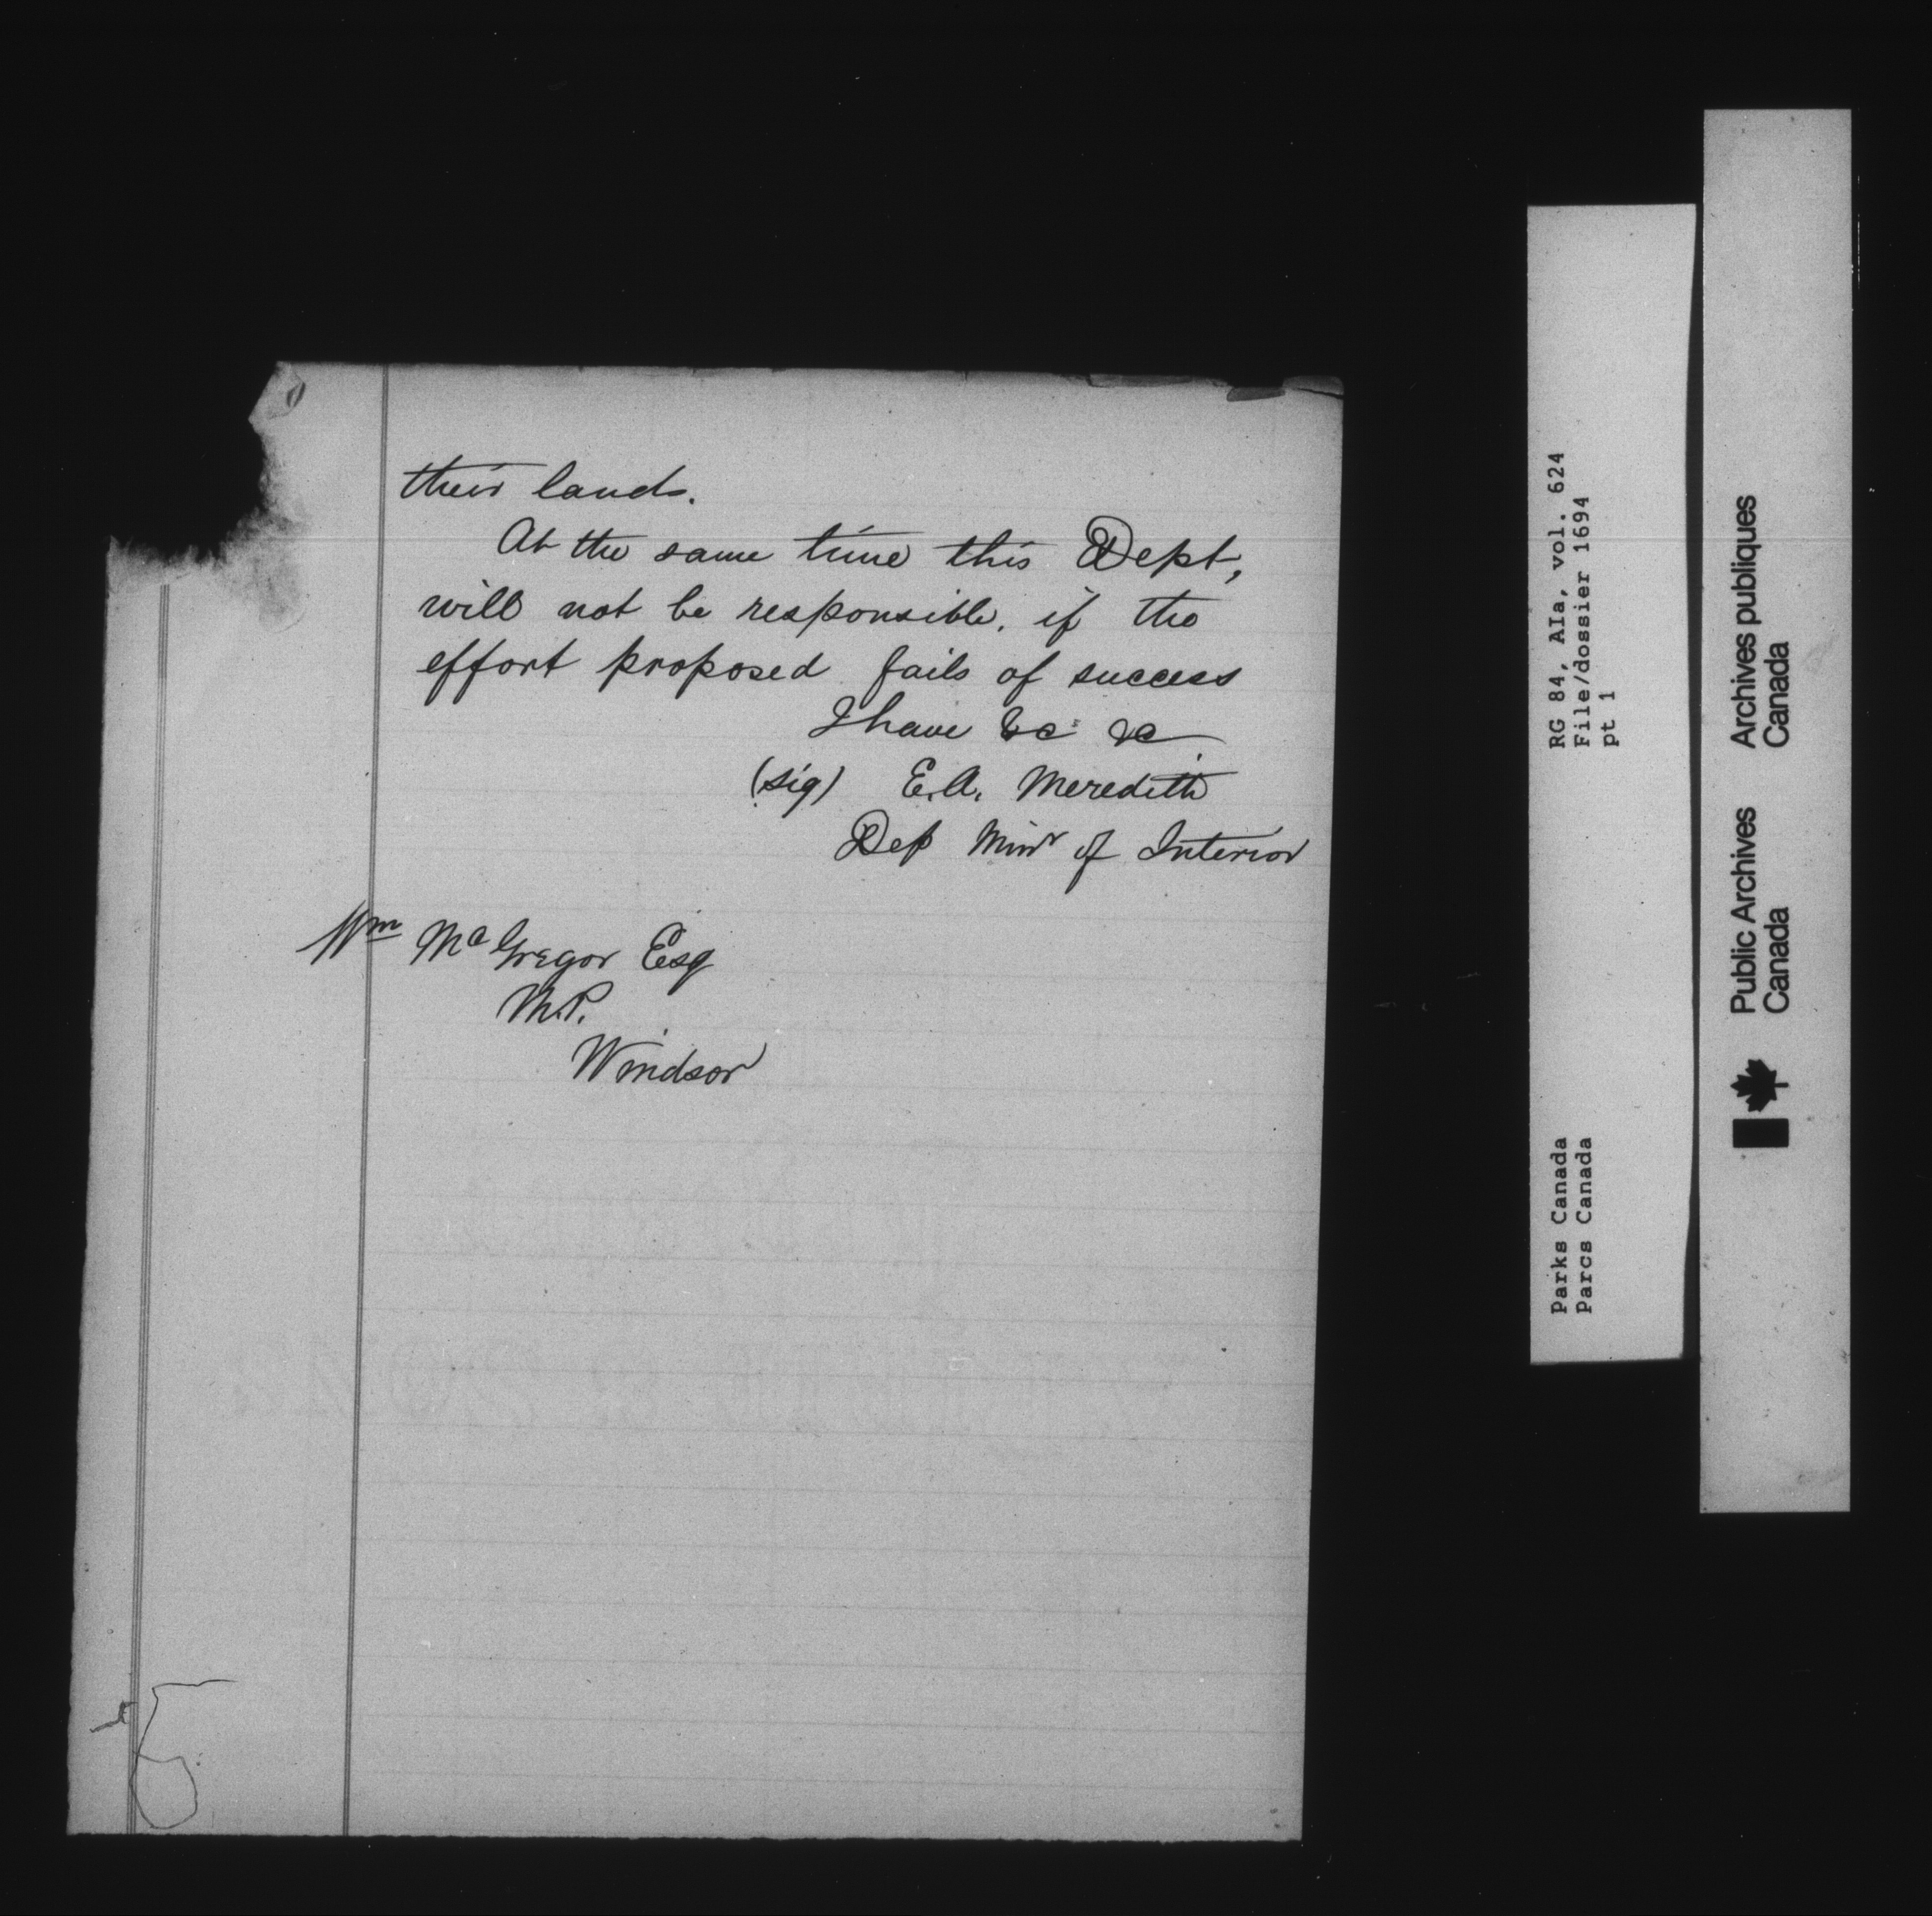 their lands.
At the same time this Dept,
will not be responsible, if the
effort proposed fails of success
I have &c &c
(sig) E.A. Meredith
Dep Minr of Interior
Wm McGregor Esq
M.P.
Windsor
RG 84, AIa, vol. 624
File/dossier 1694
pt 1
Parks Canada
Parcs Canada
Public Archives
Canada
Archives publiques
Canada